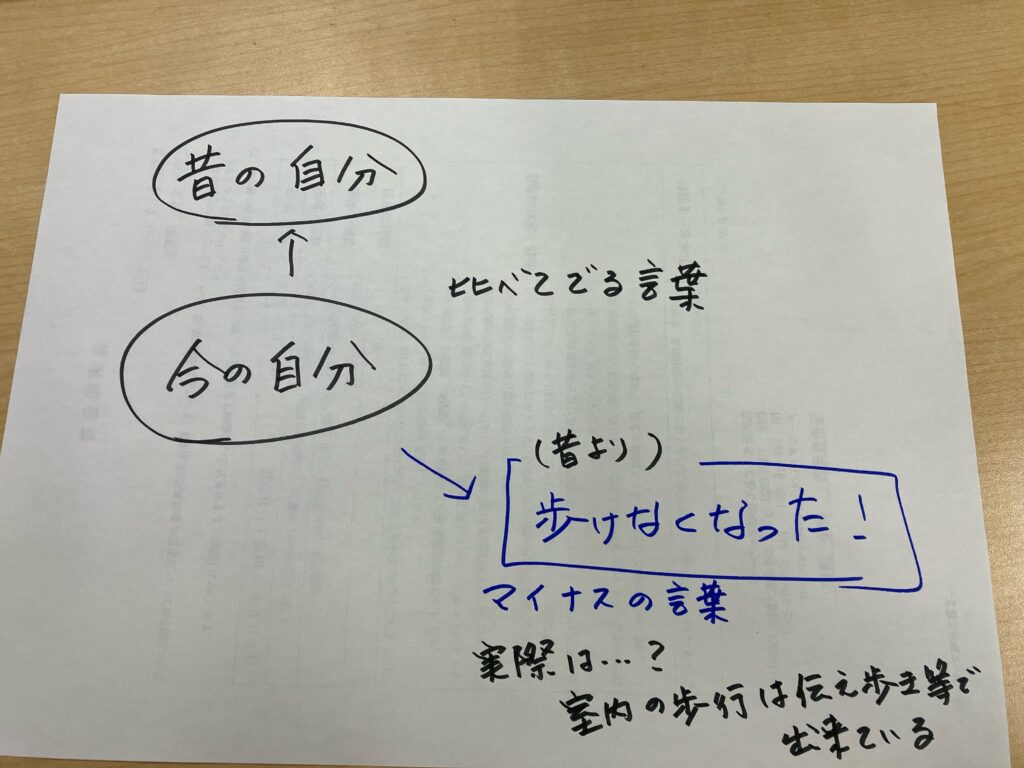 昔の自分
↑
今の自分
比べてでる言葉
(昔より)
歩けなくなった！
マイナスの言葉
実際は…？
室内の歩行は伝え歩き等で
出来ている